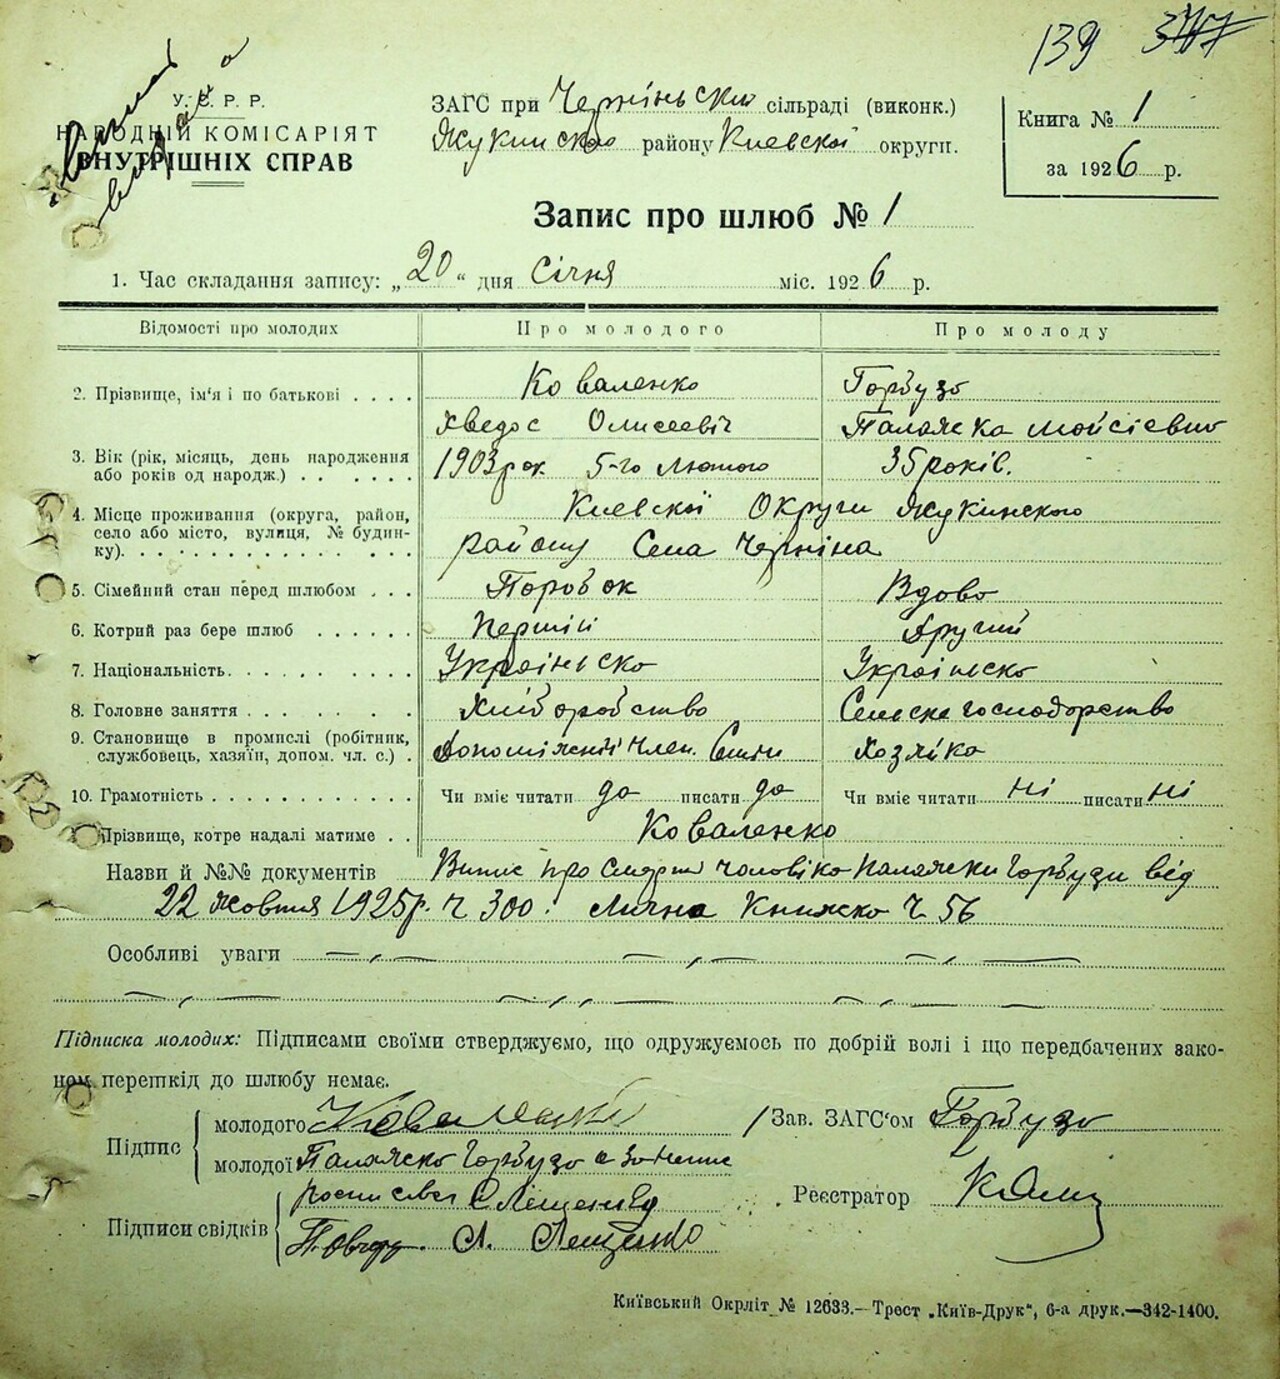 139 377
У. С. Р. Р.
НАРОДНІЙ КОМІСАРІЯТ
ВНУТРІШНІХ СПРАВ
ЗАГС при Черніньскій сільраді (виконк.)
Жукинского району Киевскої округи.
Книга № 1
за 1926 р.
Запис про шлюб № 1
1. Час складання запису: „20“ дня Січня міс. 1926 р.
Відомості про молодих Про молодого Про молоду
2. Прізвище, ім'я і по батькові . . . . Коваленко Горбуза
Хведос Олисеевіч Палажка Мойсієвна
3. Вік (рік, місяць, день народження або років од народж.) . . . . . . 1903 рок 5-го Лютого 35 років.
4. Місце проживання (округа, район, село або місто, вулиця, № будинку). Киевскої Округи Жукинского
району Села Черніна
5. Сімейний стан перед шлюбом . . . Паробок Вдова
6. Котрий раз бере шлюб . . . . . . Першій Другий
7. Національність. . . . . . . . . . Україньска Українска
8. Головне заняття . . . . . . . . Хліборобство Сельске господорство
9. Становище в промислі (робітник, службовець, хазяїн, допом. чл. с.) . Допоміжній член. Сімьи Хозяйка
10. Грамотність . . . . . . . . . . . Чи вміє читати да писати да Чи вміє читати ні писати ні
Прізвище, котре надалі матиме . . Коваленко
Назви й №№ документів Випис про Смерть чоловіка Палажки Горбузи від
22 Жовтня 1925 р. Ч 300. Лична Книжка Ч. 56
Особливі уваги — „ — — „ — — „ —
— „ — — „ — — „ — —
Підписка молодих: Підписами своїми стверджуємо, що одружуємось по добрій волі і що передбачених зако-
ном перешкід до шлюбу немає.
Підпис молодого Коваленко Зав. ЗАГС'ом Горбуза
молодої Палажка Горбуза а за неи
росписався Лещенко Реєстратор
Підписи свідків А. Лещенко
Київський Окрліт № 12633.—Трест „Київ-Друк“, 6-а друк.—342-1400.